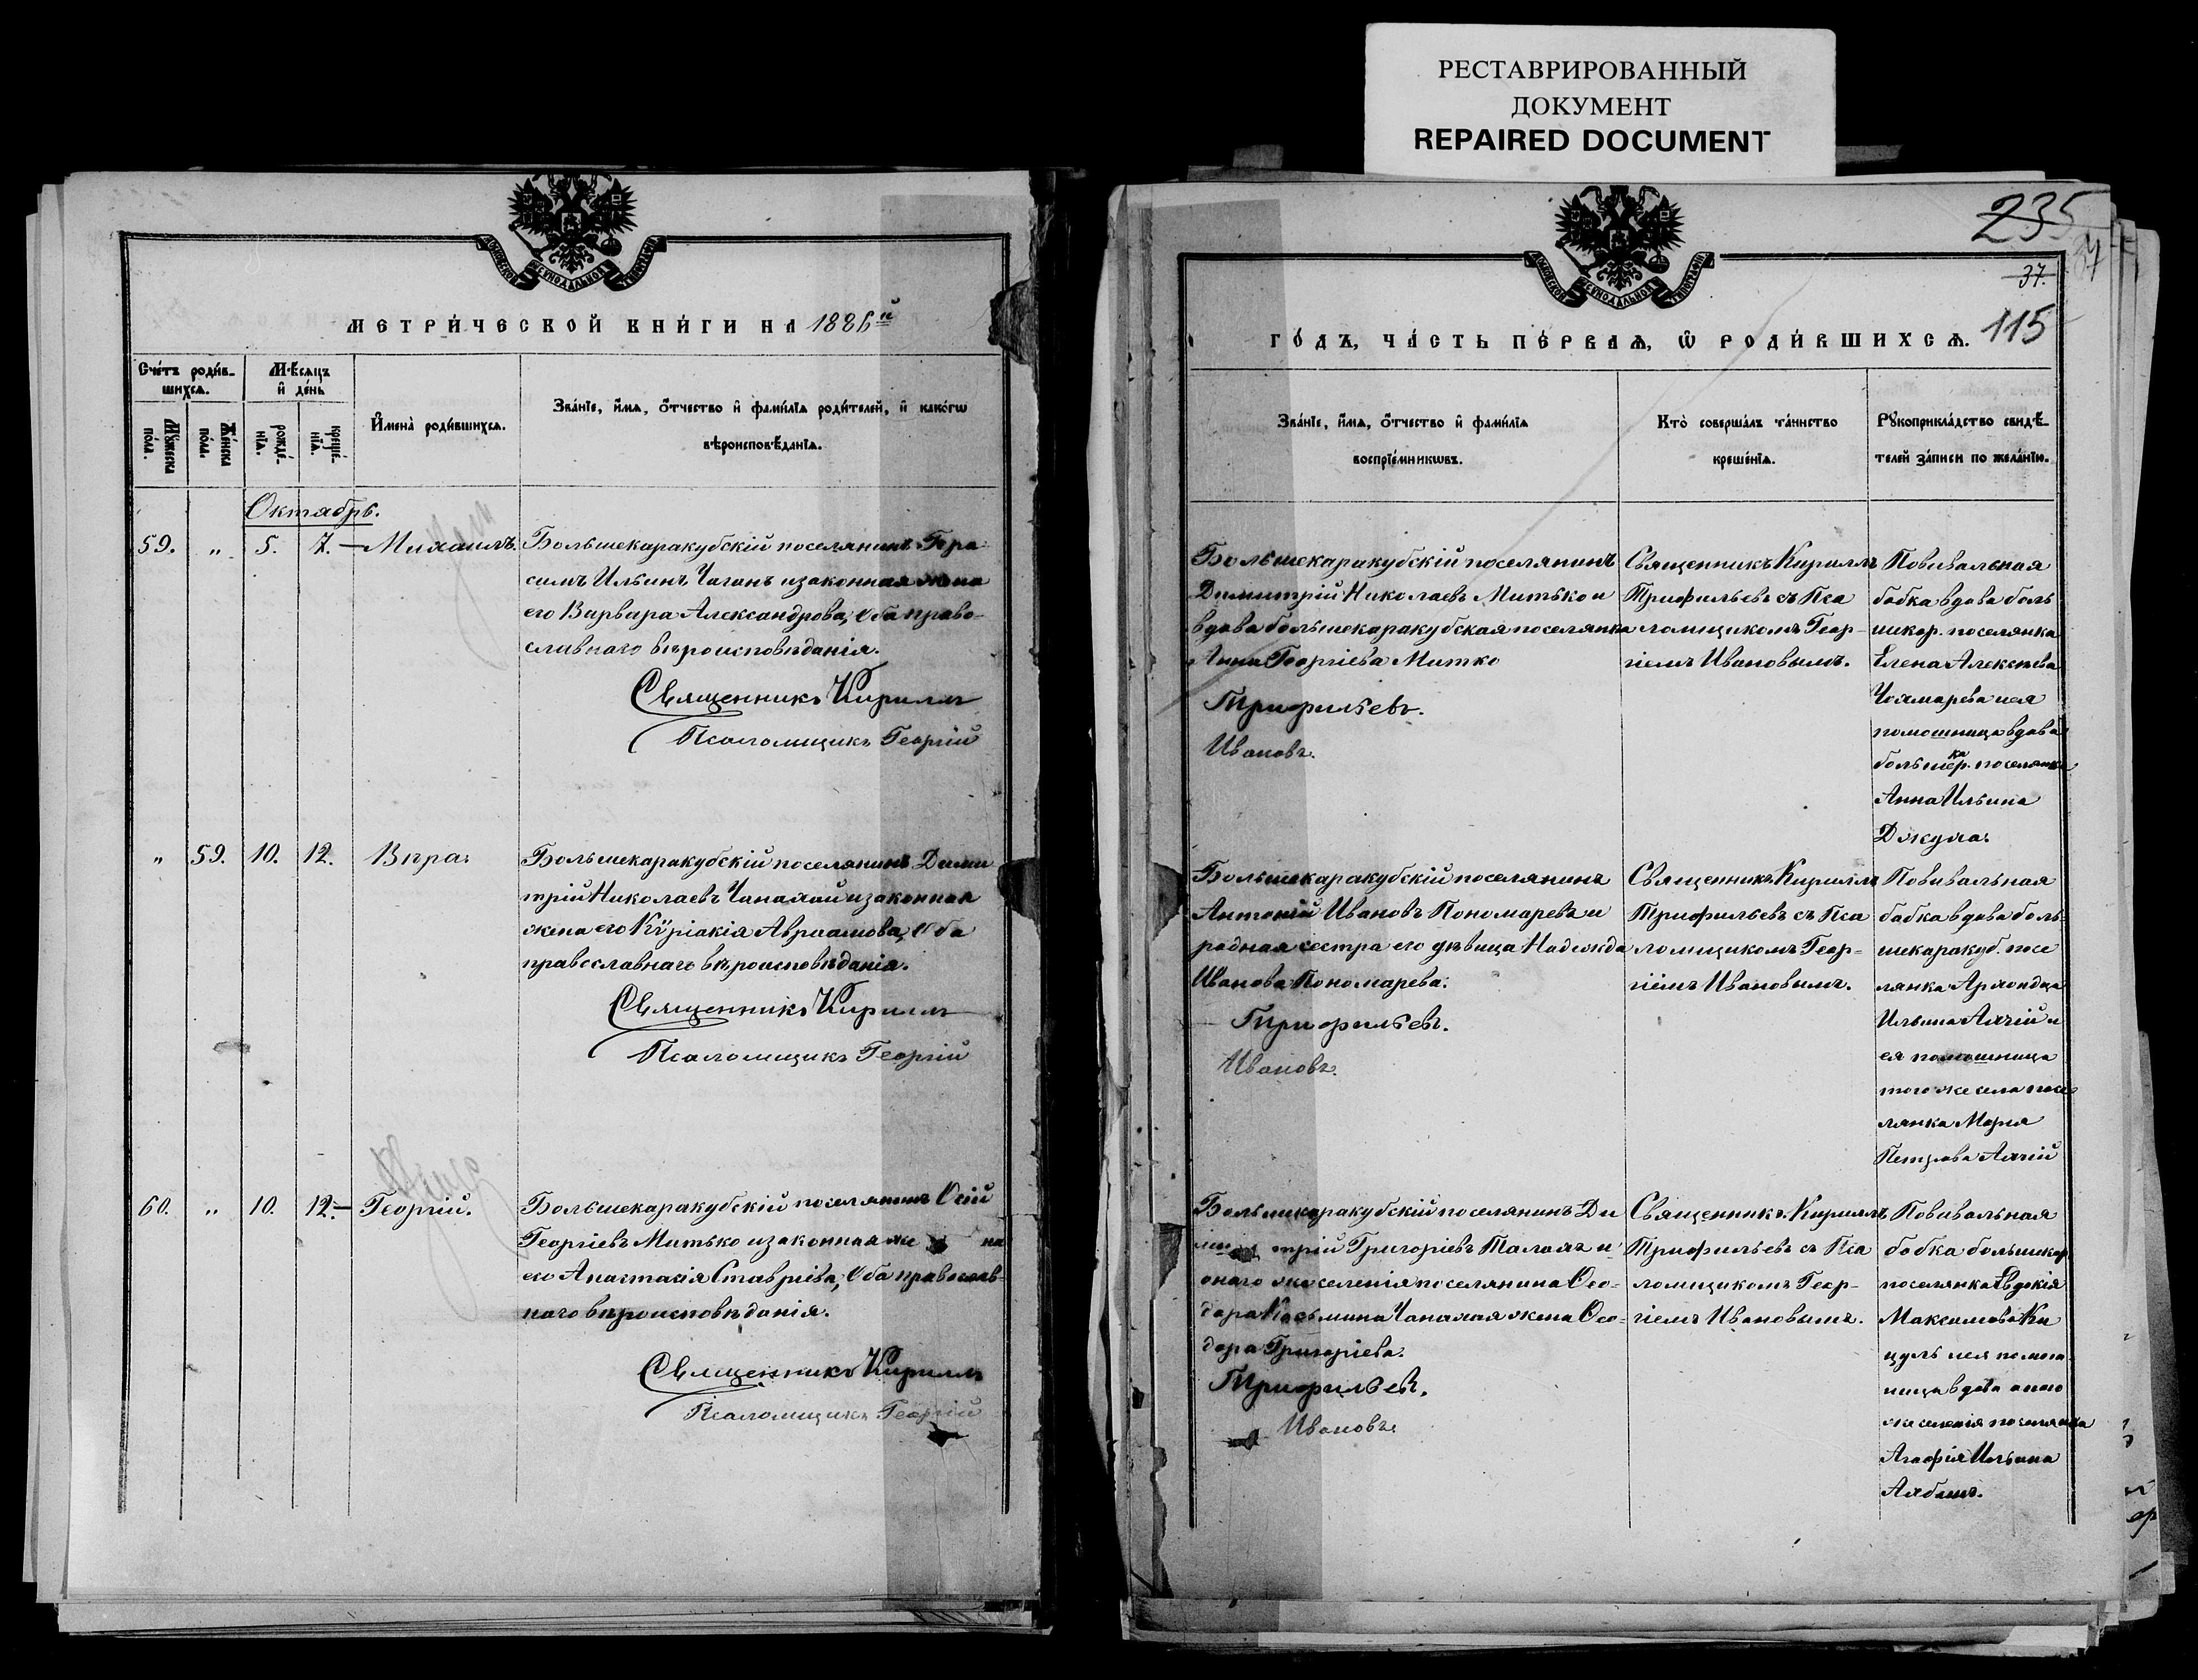 РЕСТАВРИРОВАННЫЙ
ДОКУМЕНТ
REPAIRED DOCUMENT
МОСКОВСКОЙ СѴНОДАЛЬНОЙ ТИПОГРАФІИ
МЕТРИ́ЧЕСКОЙ КНИ́ГИ НА 1886й
Сче́тъ роди́в-
шихсѧ.
Мѣ́сѧцъ
и҆ де́нь
Мꙋ́жеска
по́ла.
Же́нска
по́ла.
рожде́-
нїѧ.
креще́-
нїѧ.
И҆мена̀ роди́вшихсѧ.
Зва́нїе, и҆́мѧ, ѻ҆́тчество и҆ фами́лїѧ роди́телей, и҆ како́гѡ
вѣроисповѣ́данїѧ.
Октябрь.
59. " 5. 7. — Михаилъ.
Большекаракубскій поселянинъ Гера
симъ Ильинъ Чаганъ и законная жена
его Варвара Александрова, Оба право-
славнаго вѣроисповѣданія.
Священникъ Кириллъ
Псаломщикъ Георгій
" 59. 10. 12. Вѣра.
Большекаракубскій поселянинъ Дими
трій Николаевъ Чапалай и законная
жена его Кѵріакія Авраамова, Оба
православнаго вѣроисповѣданія.
Священникъ Кириллъ
Псаломщикъ Георгій
60. " 10. 12. — Георгій.
Большекаракубскій поселянинъ
Георгіевъ Митько и законная же на
его Анастасія Ставріева, Оба православ-
наго вѣроисповѣданія.
Священникъ Кириллъ
Псаломщикъ Георгій
235
87
37.
115
МОСКОВСКОЙ СѴНОДАЛЬНОЙ ТИПОГРАФІИ
ГО́ДЪ, ЧА́СТЬ ПЕ́РВАѦ, Ѡ҆ РОДИ́ВШИХСѦ.
Зва́нїе, и҆́мѧ, ѻ҆́тчество и҆ фами́лїѧ
воспрїе́мникѡвъ.
Кто̀ соверша́лъ та́инство
креще́нїѧ.
Рꙋкоприкла́дство свидѣ́-
телей за́писи по жела́нїю.
Большекаракубскій поселянинъ
Димитрій Николаевъ Митько и
вдова большекаракубская поселянка
Анна Георгіева Митко
Трифильевъ.
Ивановъ.
Священникъ Кириллъ
Трифильевъ съ Пса
ломщикомъ Геор-
гіемъ Ивановымъ.
Повивальная
бабка вдова боль
шекар. поселянка
Елена Алексѣева
помошница вдова
большекар. поселянка
Анна Ильина
Джума.
Большекаракубскій поселянинъ
Антоній Ивановъ Пономаревъ и
родная сестра его дѣвица Надежда
Иванова Пономарева.
Трифильевъ.
Ивановъ.
Священникъ Кириллъ
Трифильевъ съ Пса
ломщикомъ Геор-
гіемъ Ивановымъ.
Повивальная
бабка вдова боль-
шекаракуб. посе
лянка
Ильина и
ея помошница
того же села посе
лянка Марія
Петрова
Большекаракубскій поселянинъ Ди
трій Григоріевъ Талалъ и
онаго же селенія поселянина Ѳео-
дора Косьмина Чапалая жена Ѳео-
дора Григоріева.
Трифильевъ.
Ивановъ.
Священникъ Кириллъ
Трифильевъ съ Пса
ломщикомъ Геор-
гіемъ Ивановымъ.
Повивальная
бабка большекар
поселянка Евдокія
Максимова Ки
цулъ и ея помош
ница вдова онаго
же селенія поселянка
Агафія Ильина